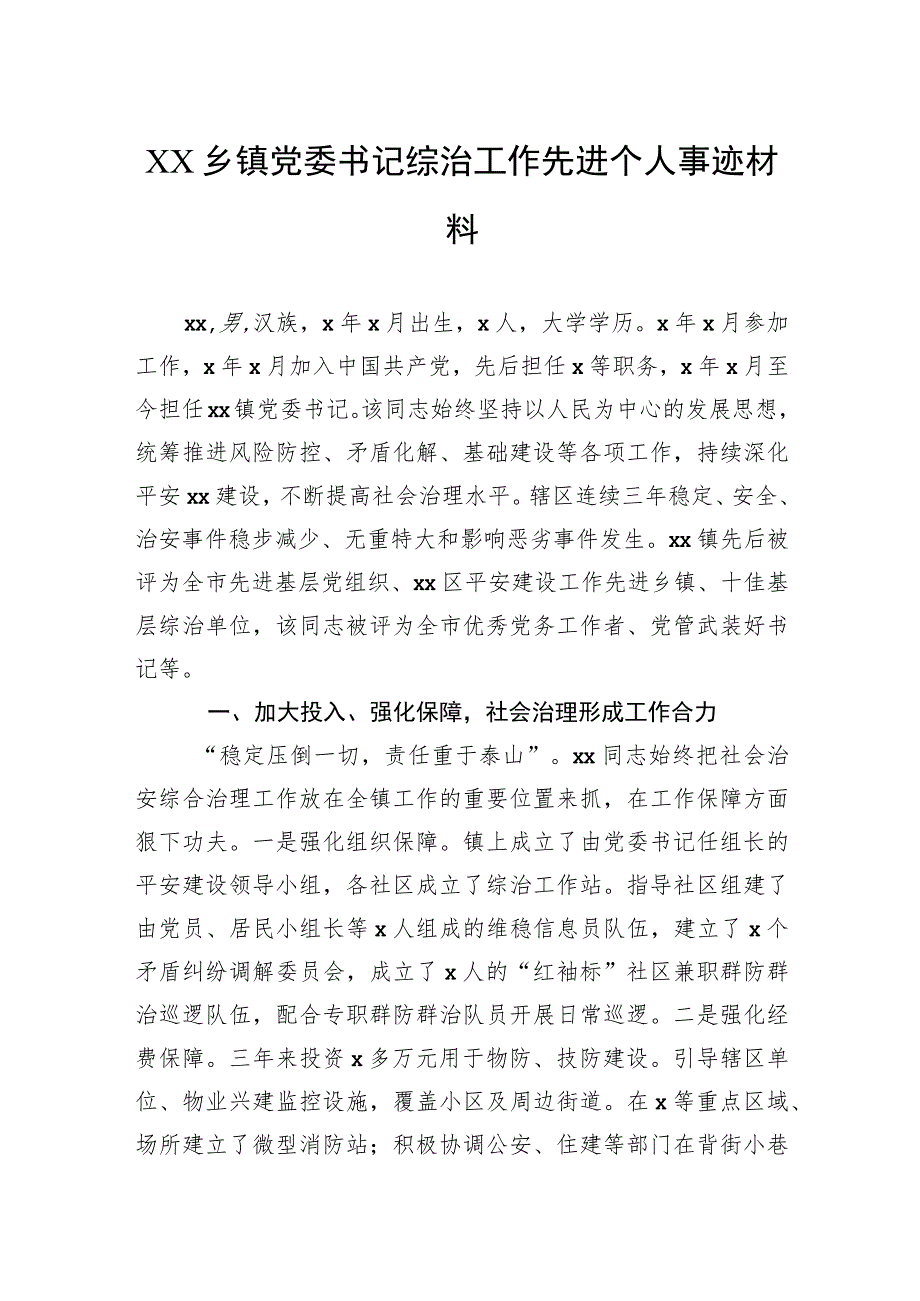 XX乡镇党委书记综治工作先进个人事迹材
料
xx,男,汉族，x年x月出生，x人，大学学历。x年x月参加
工作，x年x月加入中国共产党，先后担任x等职务，x年x月至
今担任xx镇党委书记。该同志始终坚持以人民为中心的发展思想，
统筹推进风险防控、矛盾化解、基础建设等各项工作，持续深化
平安xx建设，不断提高社会治理水平。辖区连续三年稳定、安全、
治安事件稳步减少、无重特大和影响恶劣事件发生。xx镇先后被
评为全市先进基层党组织、xx区平安建设工作先进乡镇、十佳基
层综治单位，该同志被评为全市优秀党务工作者、党管武装好书
记等。
一、加大投入、强化保障，社会治理形成工作合力
“稳定压倒一切，责任重于泰山”。xx同志始终把社会治
安综合治理工作放在全镇工作的重要位置来抓，在工作保障方面
狠下功夫。一是强化组织保障。镇上成立了由党委书记任组长的
平安建设领导小组，各社区成立了综治工作站。指导社区组建了
由党员、居民小组长等x人组成的维稳信息员队伍，建立了x个
矛盾纠纷调解委员会，成立了x人的“红袖标”社区兼职群防群
治巡逻队伍，配合专职群防群治队员开展日常巡逻。二是强化经
费保障。三年来投资x多万元用于物防、技防建设。引导辖区单
位、物业兴建监控设施，覆盖小区及周边街道。在x等重点区域、
场所建立了微型消防站；积极协调公安、住建等部门在背街小巷